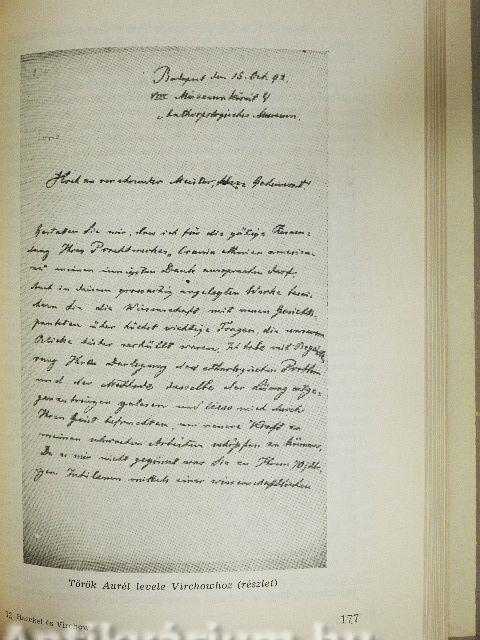 Budapest den 15. Oct. 92.
VIII Múzeumkörút 4
Anthropologisches Museum.
Hoch zu verehrender Meister, Herr Geheimrat
Gestatten Sie mir, dass ich für die gütige Zusen-
dung Ihres Prachtwerkes „Crania Ethnica america-
na" meinen innigsten Dank aussprechen darf.
Auch in diesem grossartig angelegten Werke berei-
chern Sie die Wissenschaft mit neuen Gesichts-
punkten über höchst wichtige Fragen, die unserem
Blicke bisher verhüllt waren. Ich habe mit
rung Ihre Darlegung des ethnologischen Problem
und der Methode dasselbe der Lösung entge-
genzubringen gelesen und liess mich durch
Ihren Geist befruchten, um neuere Kraft zu
meinen schwachen Arbeiten schöpfen zu können.
Da es mir nicht gegönnt war Sie zu Ihrem 70jähri-
gen Jubiläum mittels einer wissenschaftlichen
Török Aurél levele Virchowhoz (részlet)
12 Haeckel és Virchow
177
Antikvárium.hu